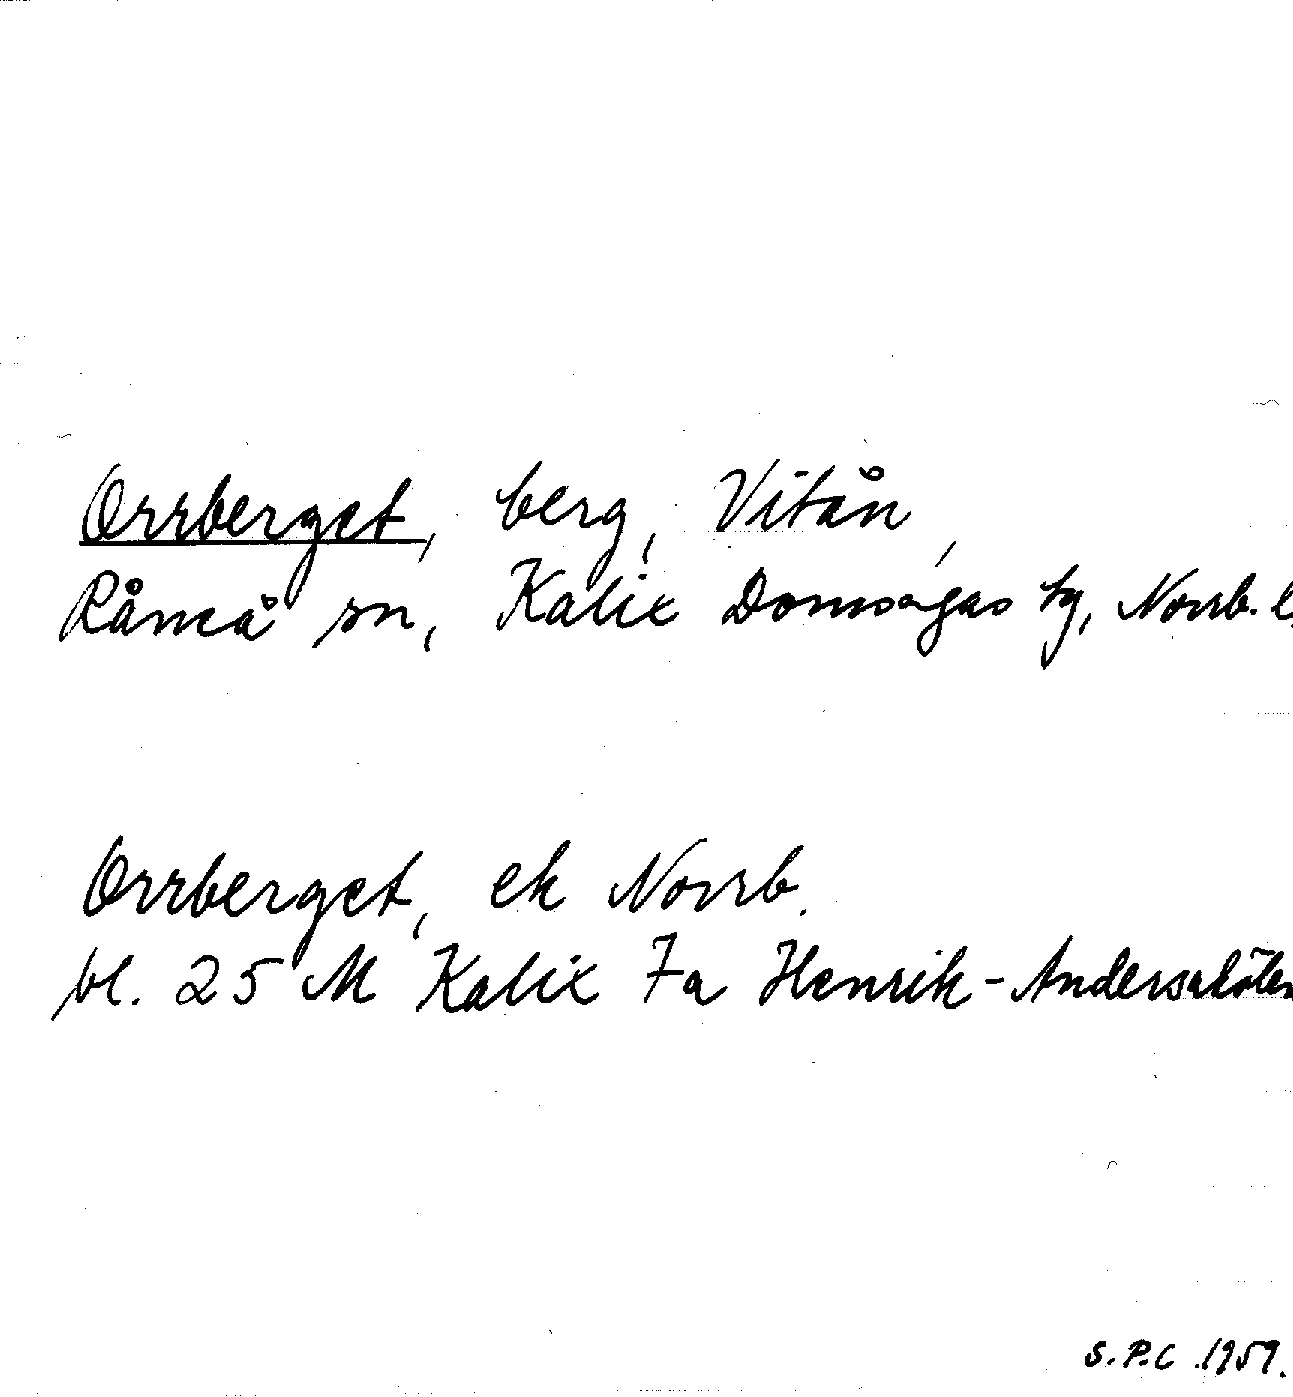 Orrberget, berg, Vitån,
Råneå sn, Kalix Domsagas tg, Norrb. l.
Orrberget, ek Norrb.
bl. 25 M Kalix Fa Henrik-Andersaköten
S.P.C 1959.